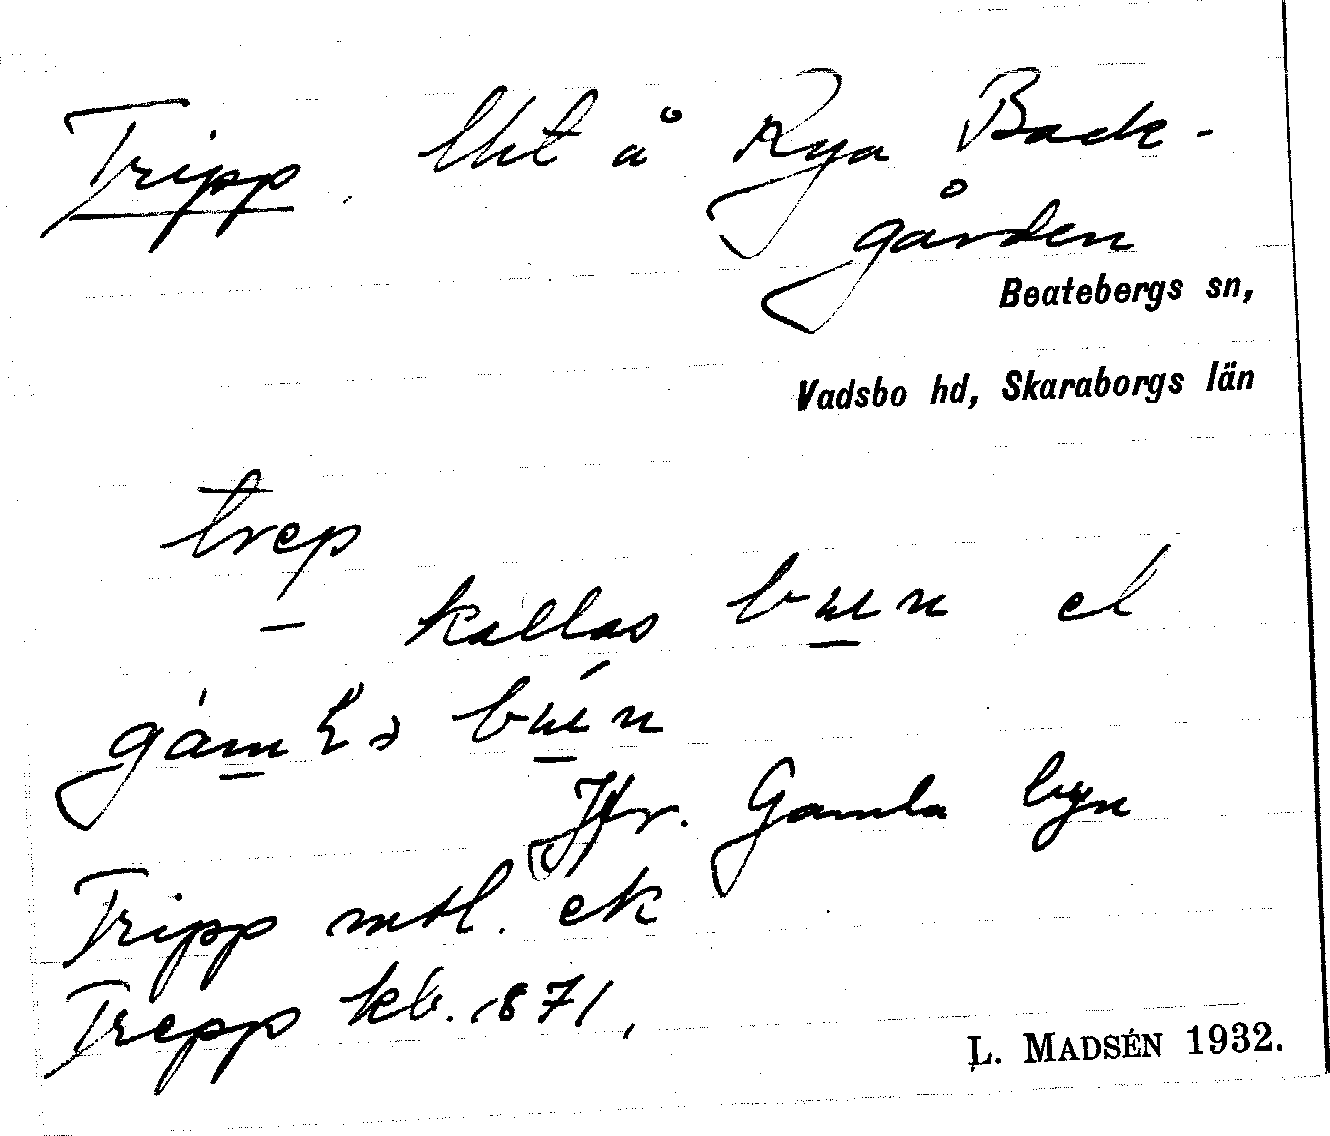 Tripp. lht å Rya Back-
gården
Beatebergs sn,
Vadsbo hd, Skaraborgs län
trep
– kallas bɯn el
gàmɫə bɯ́n
Jfr. Gamla byn
Tripp mtl. ek
Trepp kb. 1871,
L. MADSÉN 1932.